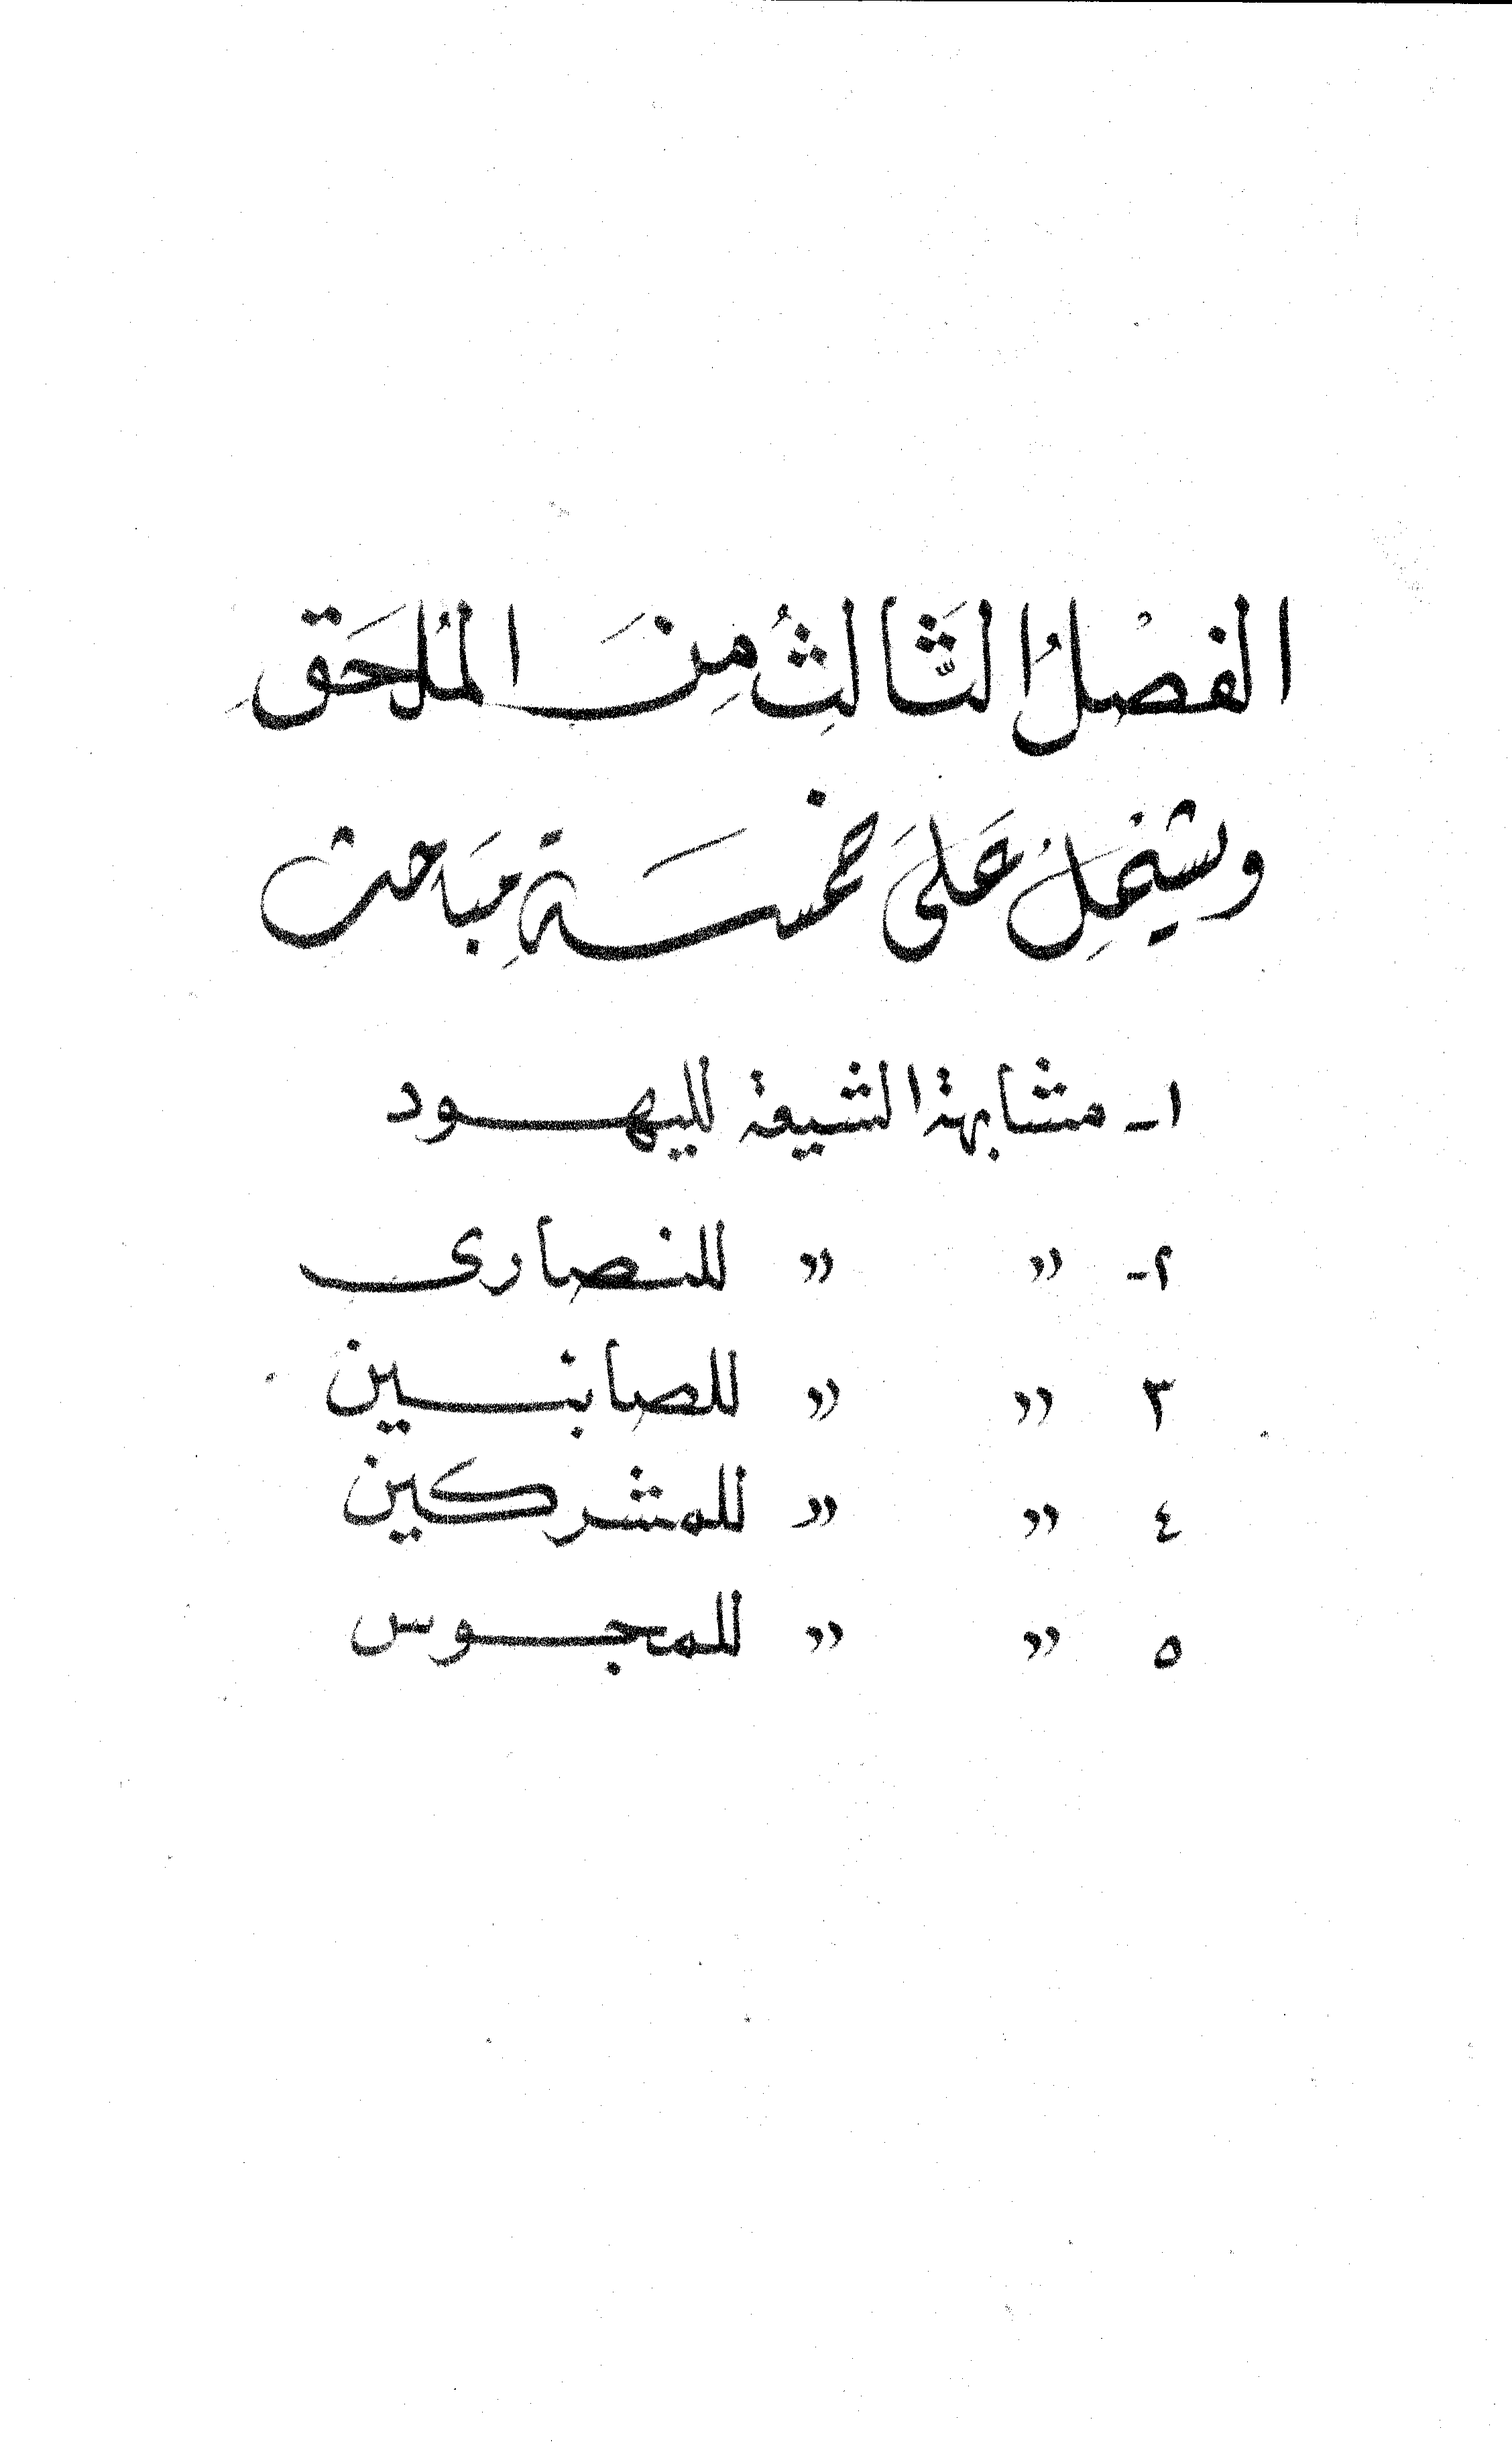 الفصْلُ الثَّالِثُ مِنَ المُلحَقِ
ويشتَمِلُ عَلىَ خمسَةِ مبَاحث
١ـ مشابهة الشيعة لليهود
٢ـ " " للنصارى
٣ " " للصابئين
٤ " " للمشركين
٥ " " للمجوس